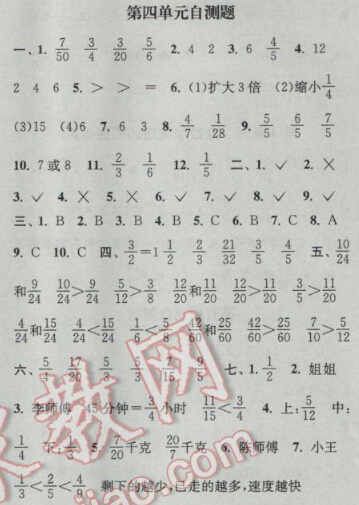 第四单元自测题
一、1. 7/50 3/4 3/20 5/6 2. 4 2 3. 6 4/5 4. 12
2 4 6 5. > > = 6. (1)扩大3倍 (2)缩小1/4
(3)15 (4)6 7. 6 3 8. 4/7 1/28 9. 5/5 6/5 7/5
10. 7或8 11. 2/3 1/6 12. 1/5 二、1. ✓ 2. ✕
3. ✓ 4. ✕ 5. ✕ 6. ✓ 7. ✓ 8. ✓ 9. ✓
三、1. B 2. B 3. B 4. B 5. C 6. B 7. C 8. A
9. C 10. C 四、3/2=1 1/2 2/3 21/32 3/5 4/5 五、10/24
和9/24 10/24>9/24 5/12>3/8 12/20和11/20 12/20>11/20 3/5>11/20
4/24和15/24 4/24<15/24 1/6<5/8 42/60和25/60 42/60>25/60 7/10>5/12
六、5/4 17/20 5/3 5/3 7/15 9/5 七、1. 1/2 2. 姐姐
3. 李师傅 45分钟=3/4小时 11/15<3/4 4. 上:5/12 中:
1/4 下:1/3 5. 7/20千克 20/7千克 6. 陈师傅 7. 小王
1/3<2/5<4/9 剩下的越少,已走的越多,速度越快